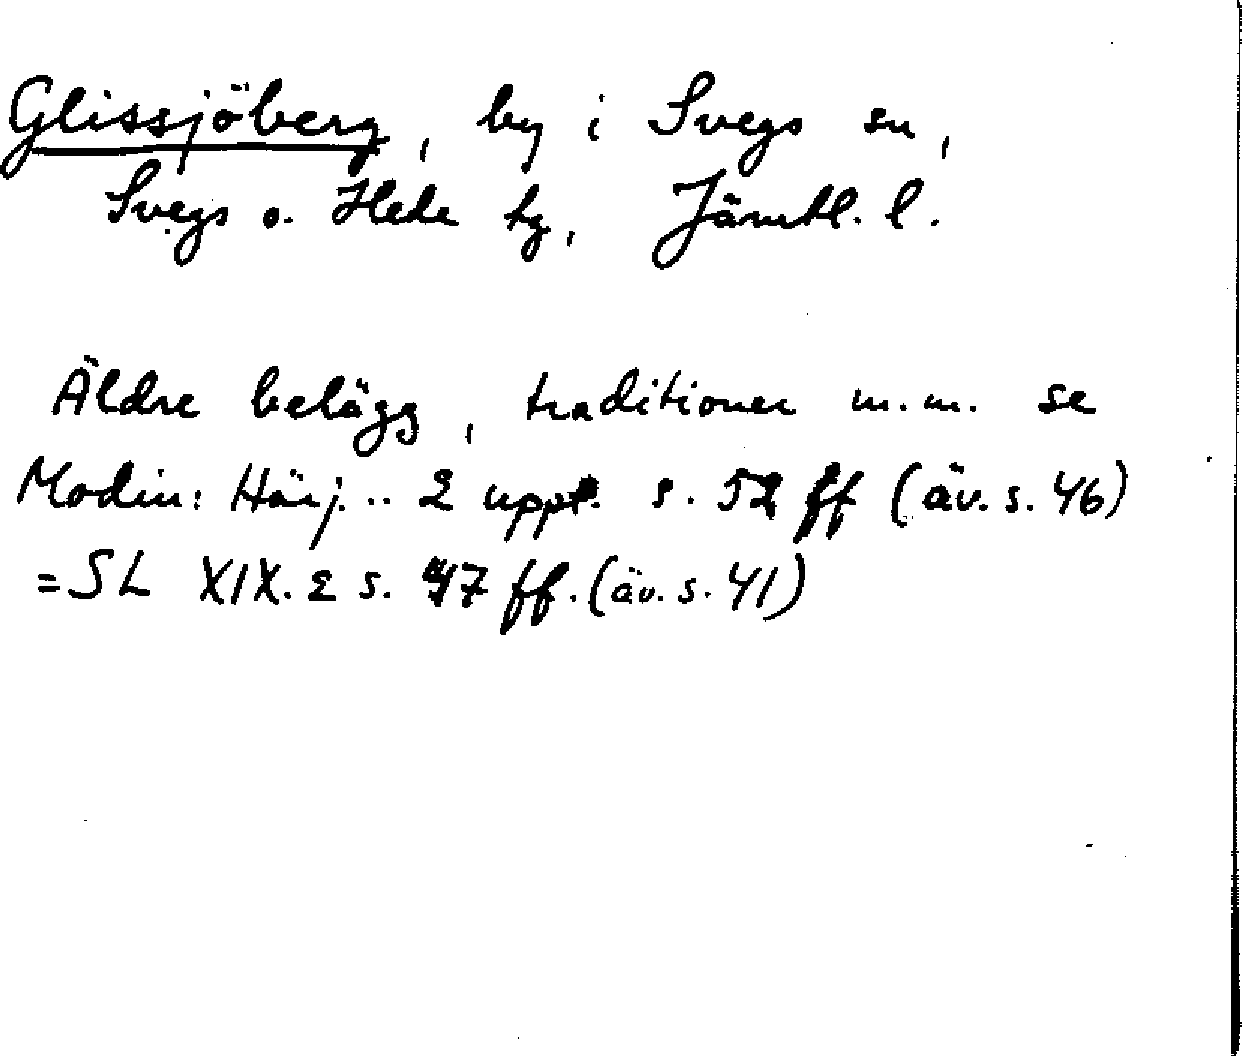 Glissjöberg, by i Svegs sn,
Svegs o. Hede tg, Jämtl. l.
Äldre belägg, traditioner m.m. se
Modin: Härj... 2 uppl. s. 52 ff (äv. s. 46)
= SL XIX. 2 s. 47 ff. (äv. s. 41)